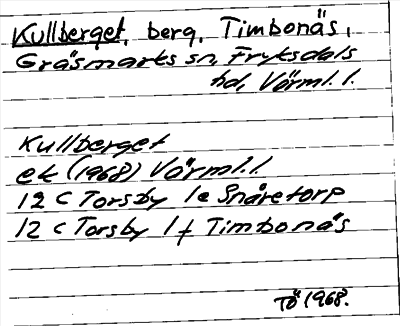 Kullberget, berg, Timbonäs,
Gräsmarks sn, Fryksdals
hd, Värml. l.
Kullberget
ek (1968) Värml. l.
12 C Torsby 1e Snåretorp
12 C Torsby 1f Timbonäs
TÖ 1968.